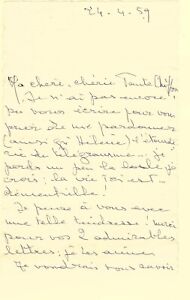 24. 4. 59
Ma chérie, chérie Tante
Je n'ai pas encore
pu vous écrire pour vous
prier de me pardonner
(ainsi qu'Hélène) l'étourde-
rie de télégramme. Je
perds un peu la boule je
crois: la vie ici est
démentielle!
Je pense à vous avec
une telle tendresse! merci
pour vos 2 admirables
lettres; je les aime
Je voudrais vous savoir